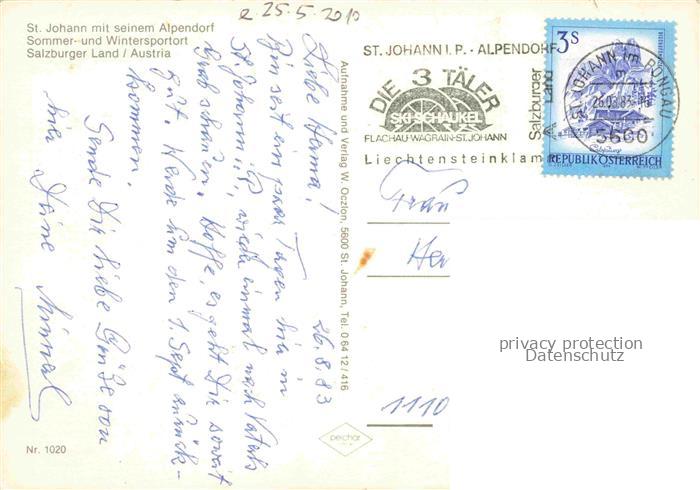 R 25.5.2010
St. Johann mit seinem Alpendorf
Sommer- und Wintersportort
Salzburger Land / Austria
26.8.83
Liebe Herma!
Bin seit ein paar Tagen hier in
St. Johann i. P., wieder einmal nach
schauen. Hoffe, es geht Dir soweit
gut. Werde um den 1. Sept zurück-
kommen.
Sende Dir liebe Grüße von
hier Deine
Nr. 1020
Aufnahme und Verlag W. Oczlon, 5600 St. Johann, Tel. 0 64 12 / 416
ST. JOHANN I. P. - ALPENDORF
DIE 3 TÄLER
SKI-SCHAUKEL
FLACHAU-WAGRAIN-ST. JOHANN
Liechtensteinklam
Salzburger
Land
ST. JOHANN im PONGAU
26.08.83
5600
3S
REPUBLIK ÖSTERREICH
Frau
Her
1110
perchar
privacy protection
Datenschutz